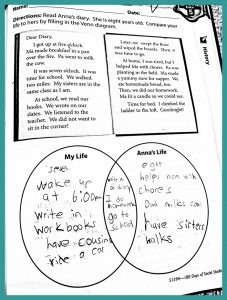 Name: Date:
Directions: Read Anna's diary. She is eight years old. Compare your
life to hers by filling in the Venn diagram.
History
Dear Diary,
I got up at five o'clock.
Ma made breakfast in a pan
over the fire. Pa went to milk
the cow.
It was seven o'clock. It was
time for school. We walked
two miles. My sisters are in the
same class as I am.
At school, we read our
books. We wrote on our
slates. We listened to the
teacher. We did not want to
sit in the corner!
Later, we swept the floor
and wiped the boards. Then, it
was time to go.
At home, I was tired, but I
helped Ma with chores. Pa was
planting in the field. Ma made
a yummy stew for supper. We
ate homemade bread, too.
Then, we did our homework.
Ma lit a candle so we could see.
Time for bed. I climbed the
ladder to the loft. Goodnight!
My Life
Anna's Life
seven
wake up
at 6:00am
write in
workbooks
have cousins
ride a car
write a
diary
I do
homework
go to
school
eight
helps mom with
chores
Dad milks cow
have sisters
walks
51394—180 Days of Social Studies